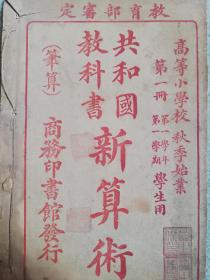 教育部審定
高等小學校 秋季始業
第一冊 第一學年 第一學期 學生用
共和國
教科書
新算術
(筆算)
商務印書館發行